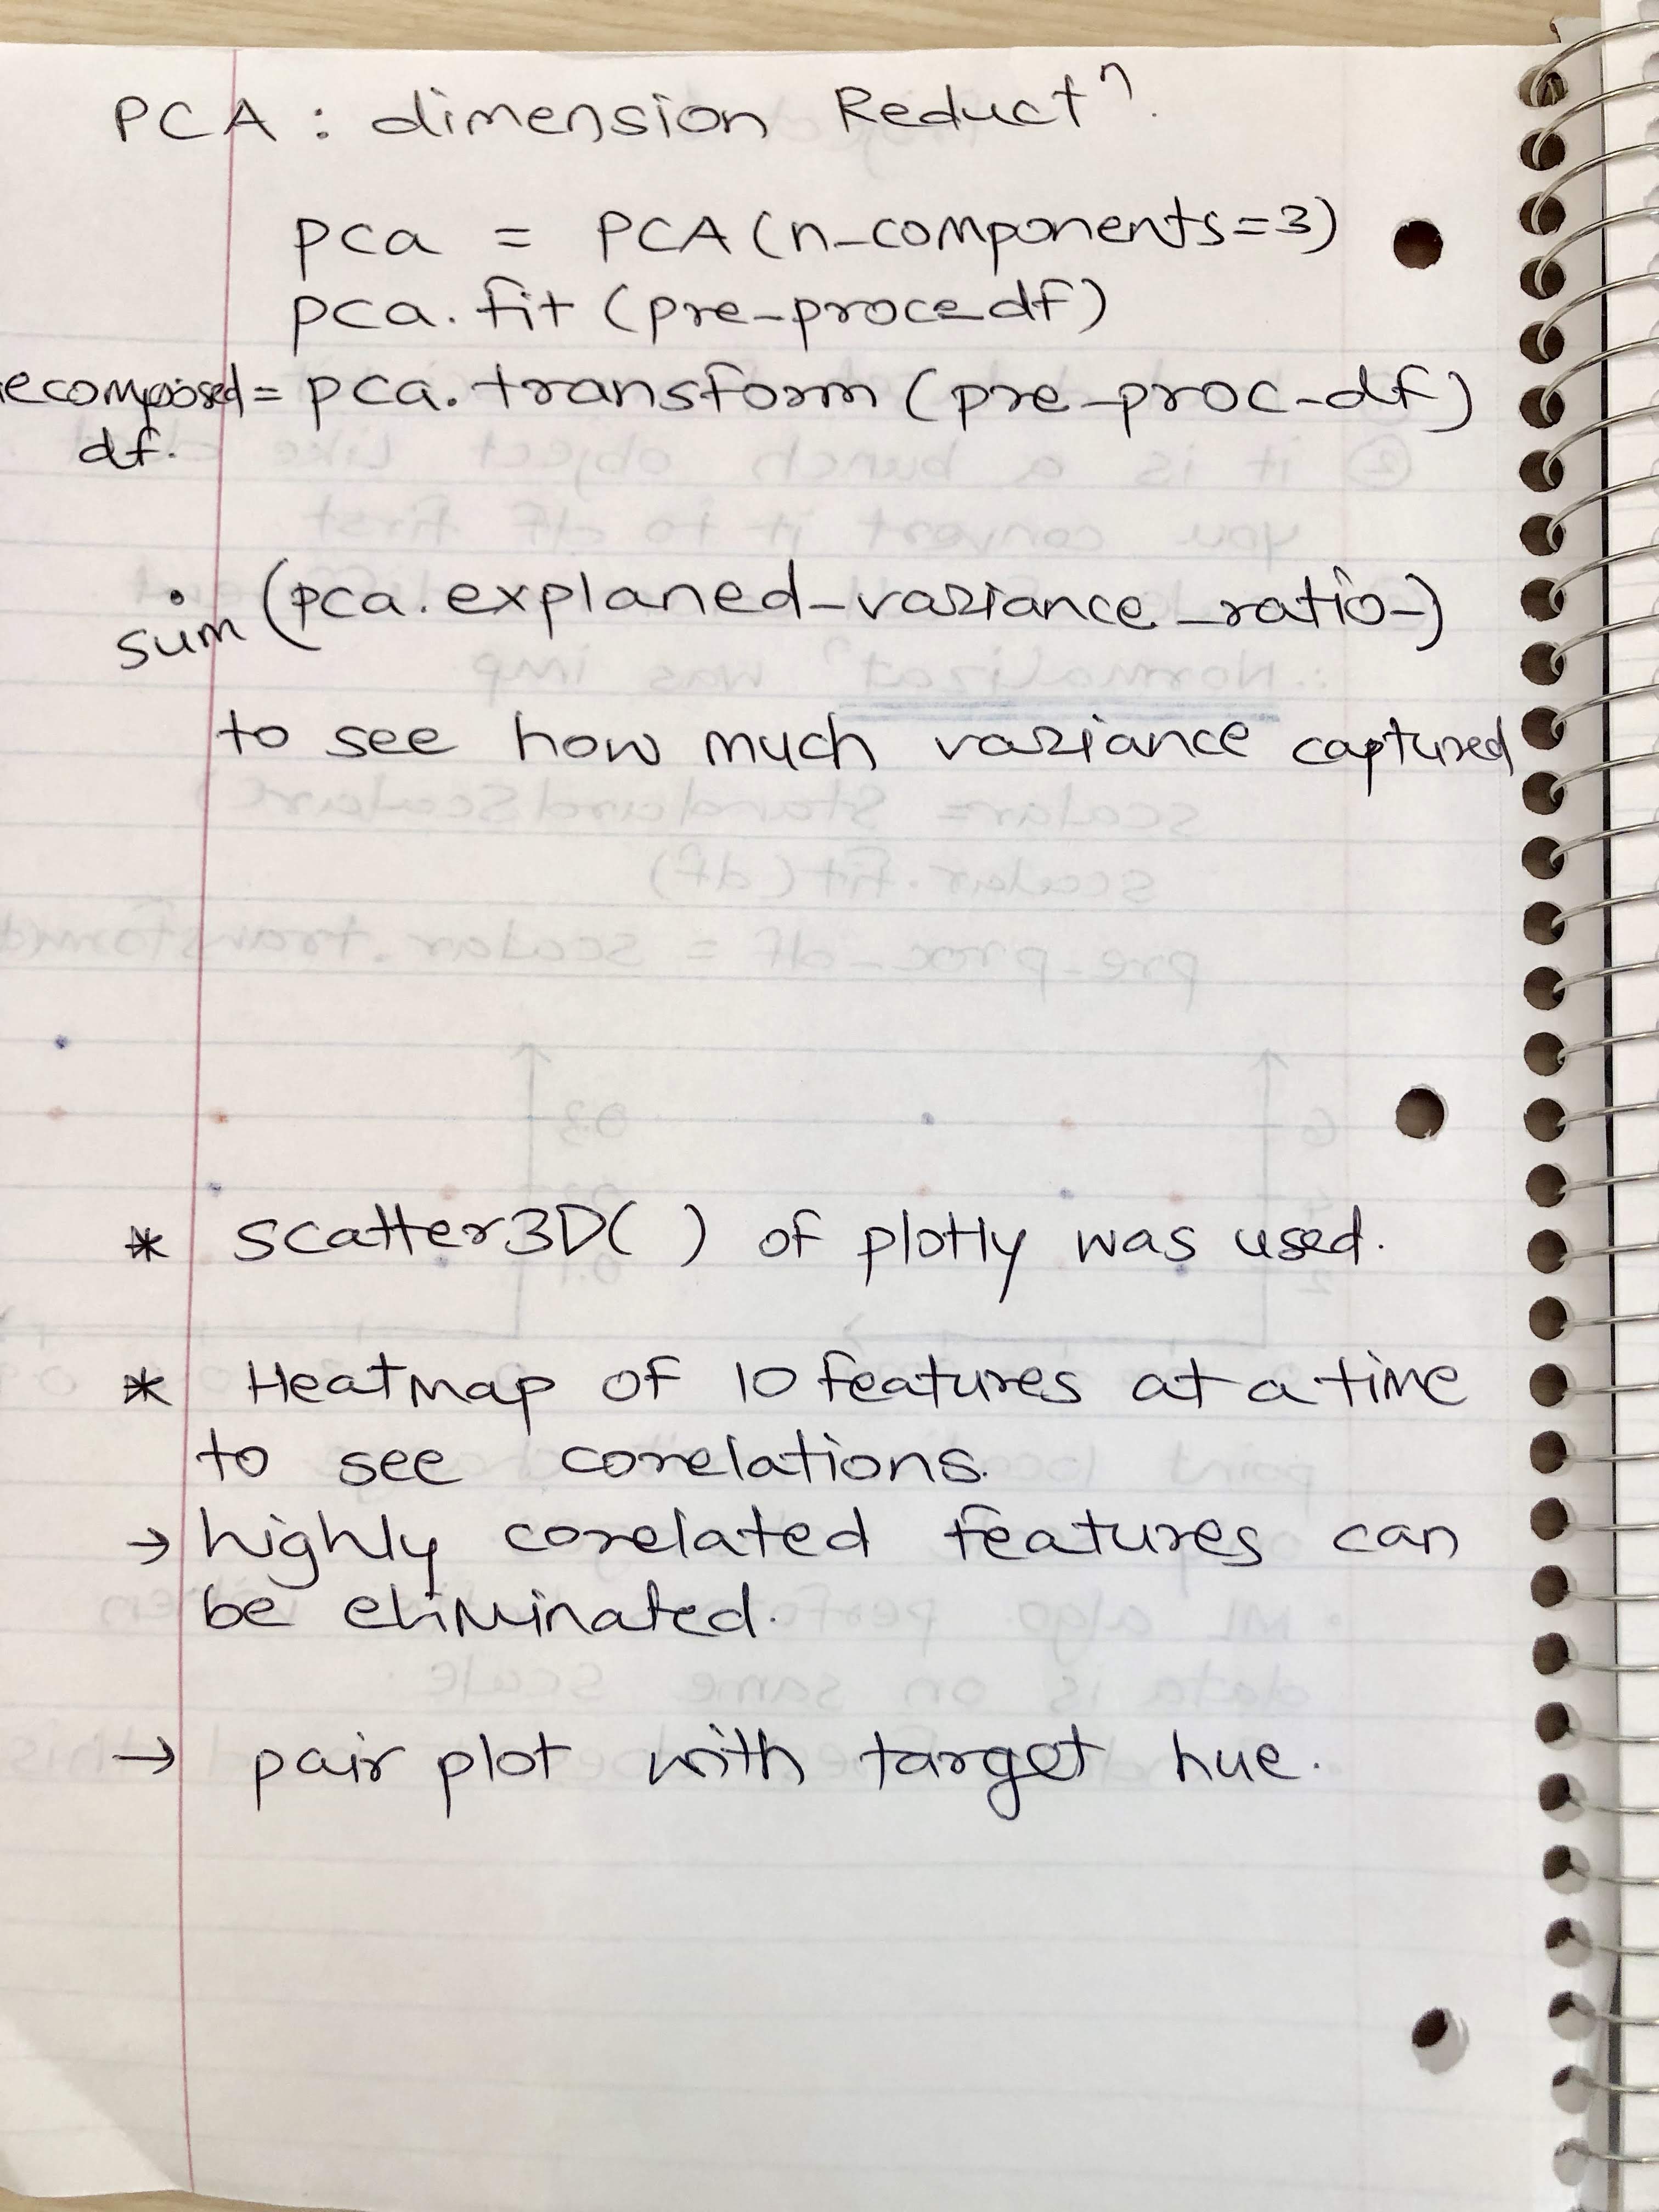 PCA : dimension Reductⁿ.
pca = PCA (n_components=3)
pca.fit (pre_proce_df)
ecomposed = pca.transform (pre_proc_df)
df.
• sum (pca.explaned_variance_ratio_)
to see how much variance captured
* scatter3D( ) of plotly was used.
* Heatmap of 10 features at a time
to see corelations.
→ highly corelated features can
be eliminated.
→ pair plot with target hue.